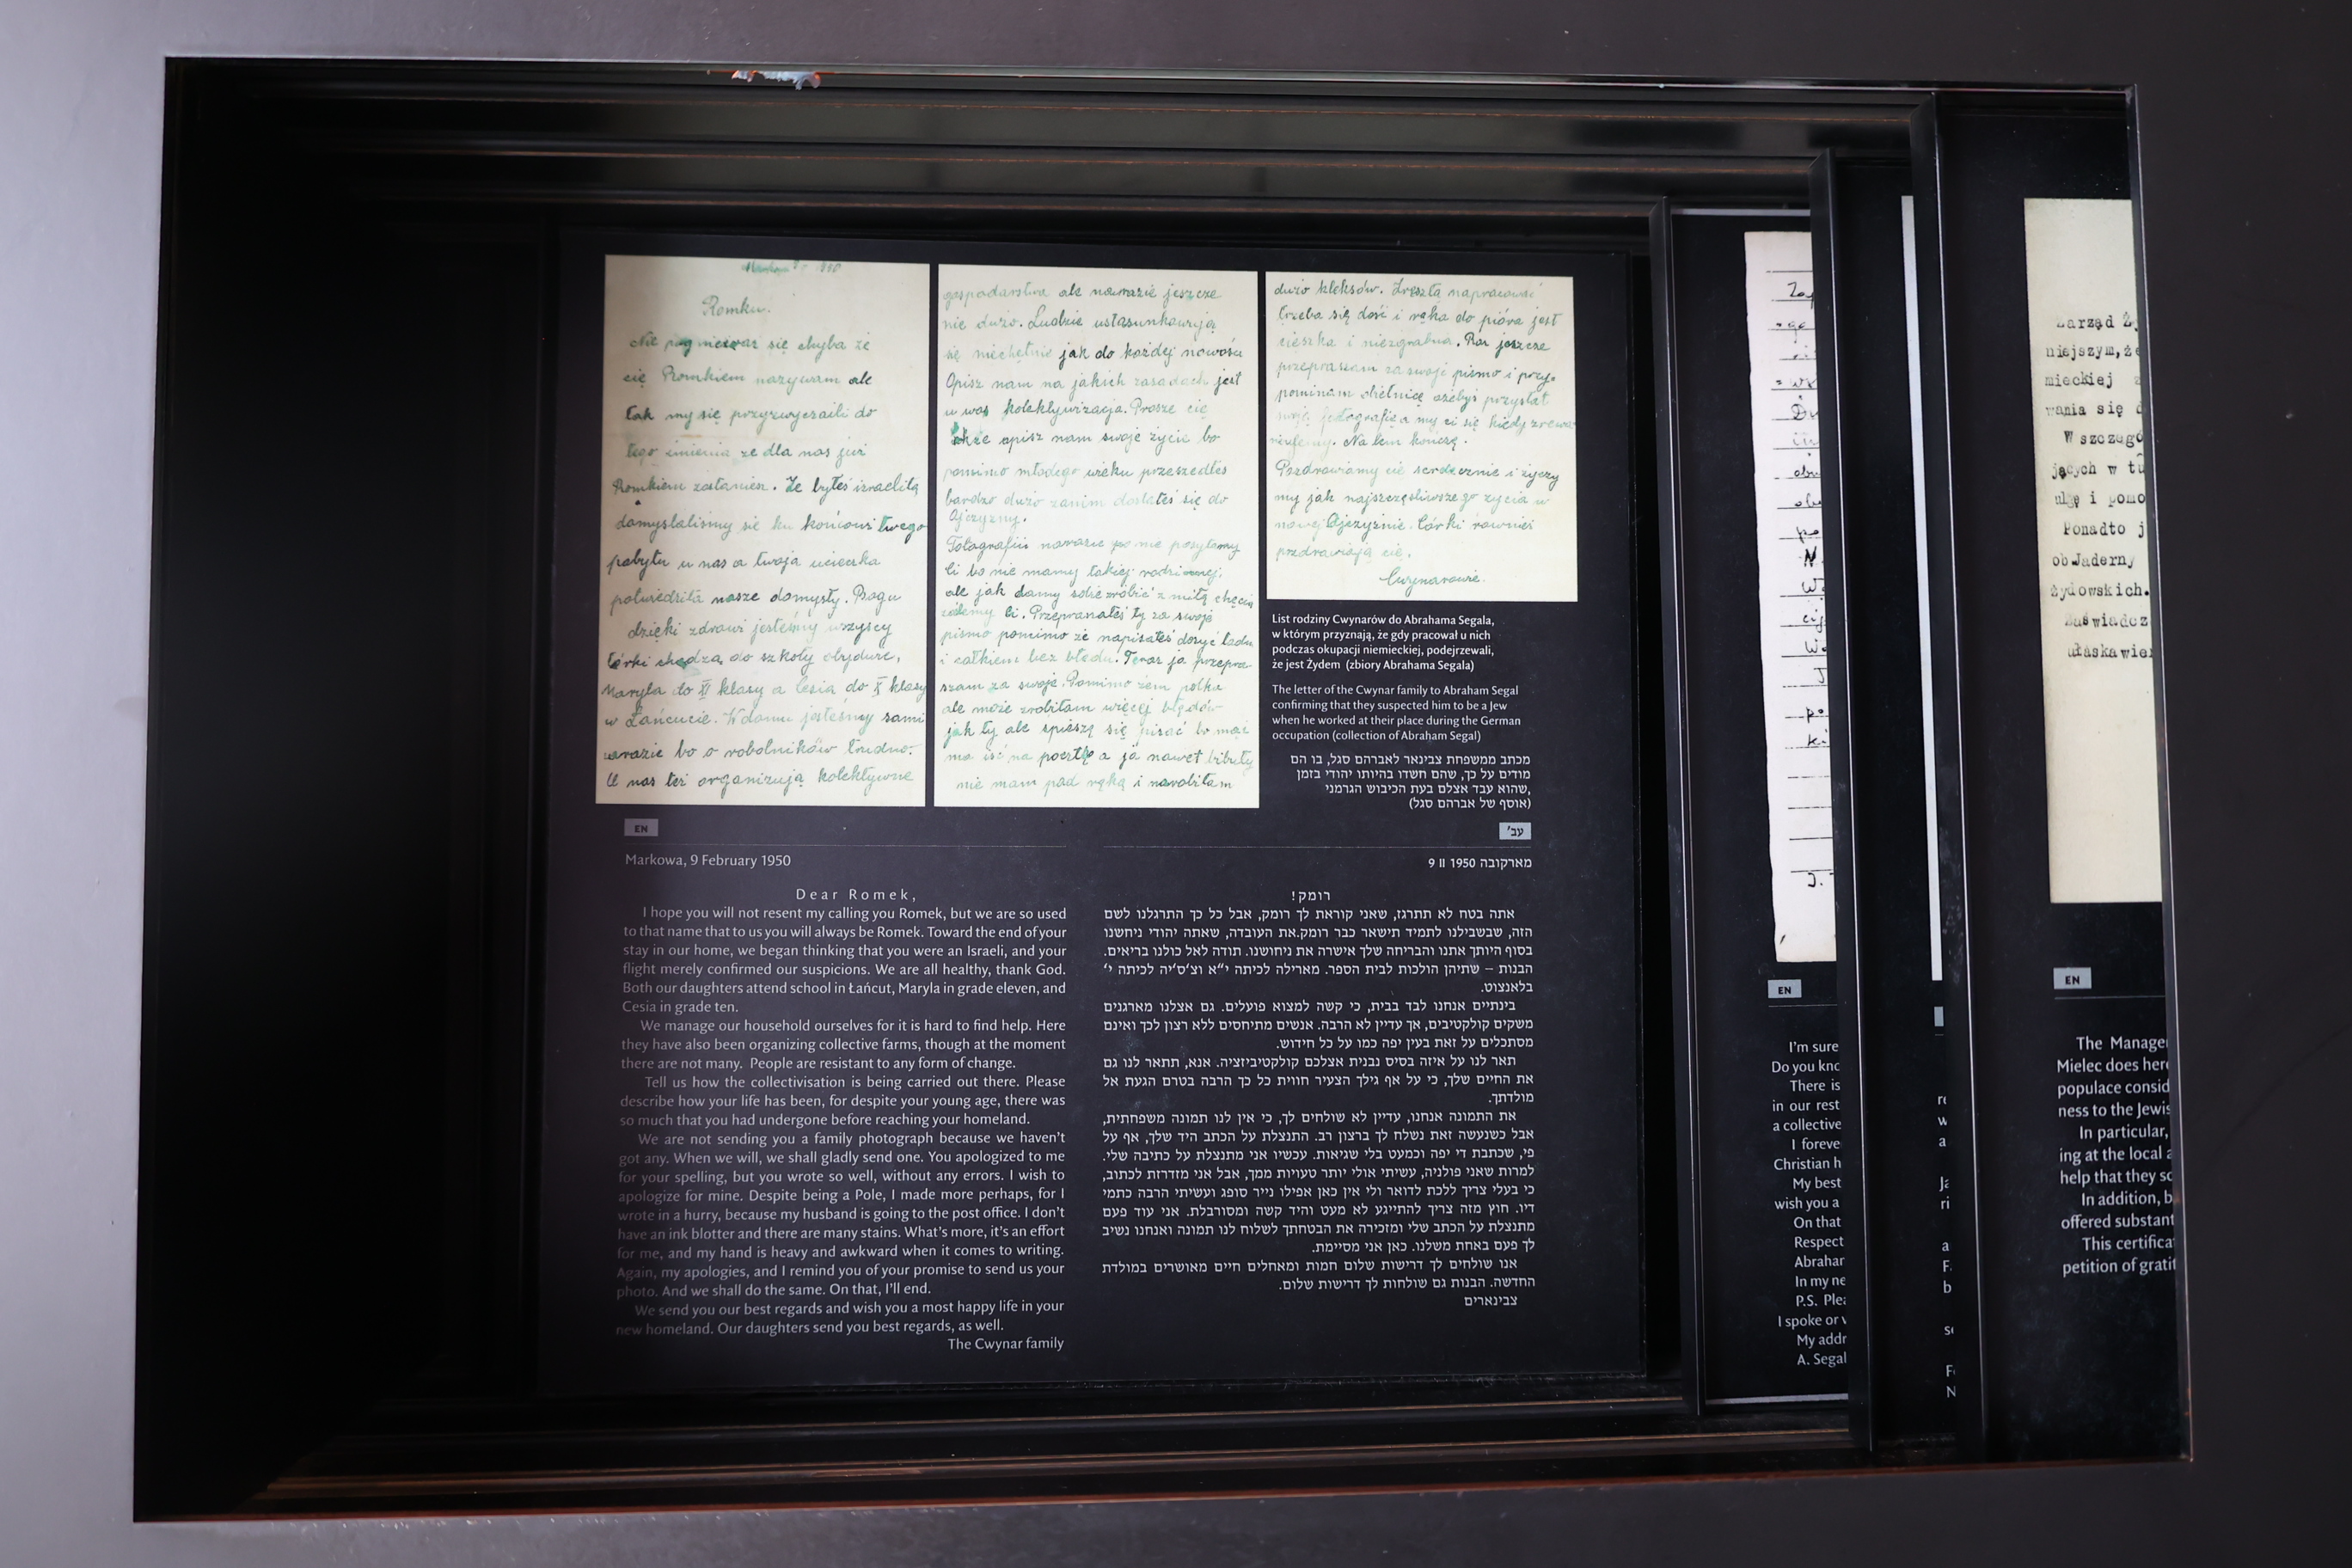 Romku.
Nie pogniewasz się chyba że
cię Romkiem nazywam ale
tak my się przyzwyczaili do
tego imienia że dla nas już
Romkiem zostaniesz. Że byłeś izraelitą
domyślaliśmy się ku końcowi twego
pobytu u nas a twoja ucieczka
potwierdziła nasze domysły. Bogu
dzięki zdrowi jesteśmy wszyscy
córki chodzą do szkoły obydwie,
Maryla do XI klasy a Cesia do X klasy
w Łańcucie. W domu jesteśmy sami
narazie bo o robotników trudno.
U nas też organizują kolektywne
gospodarstwa ale narazie jeszcze
nie dużo. Ludzie ustasunkowują
się niechętnie jak do każdej nowości
Opisz nam na jakich zasadach jest
u was kolektywizacja. Proszę cię
także opisz nam swoje życie bo
pomimo młodego wieku przeszedłeś
bardzo dużo zanim dostałeś się do
Ojczyzny.
Fotografii narazie nie posyłamy
ci bo nie mamy takiej rodzinnej,
ale jak damy sobie zrobić z miłą chęcią
ci. Przepraszałeś ty za swoje
pismo pomimo że napisałeś dosyć ładnie
i całkiem bez błędu. Teraz ja przepra-
szam za swoje. Pomimo żem polka
ale może zrobiłam więcej błędów
jak ty ale spieszę się pisać bo mąż
ma iść na pocztę a ja nawet bibuły
nie mam pod ręką i narobiłam
dużo kleksów. Zresztą napracować
trzeba się dość i ręka do pióra jest
cięszka i niezgrabna. Raz jeszcze
przepraszam za swoje pismo i przy-
pominam obietnicę ażebyś przysłał
swoją fotografię a my ci się kiedy zrewan-
żujemy. Na tem kończę.
Pozdrawiamy cię serdecznie i życzy
my jak najszczęśliwszego życia w
nowej Ojczyźnie. Córki również
pozdrawiają cię.
Cwynarowie.
List rodziny Cwynarów do Abrahama Segala,
w którym przyznają, że gdy pracował u nich
podczas okupacji niemieckiej, podejrzewali,
że jest Żydem (zbiory Abrahama Segala)
The letter of the Cwynar family to Abraham Segal
confirming that they suspected him to be a Jew
when he worked at their place during the German
occupation (collection of Abraham Segal)
מכתב ממשפחת צבינאר לאברהם סגל, בו הם
מודים על כך, שהם חשדו בהיותו יהודי בזמן
שהוא עבד אצלם בעת הכיבוש הגרמני,
(אוסף של אברהם סגל)
EN
Markowa, 9 February 1950
Dear Romek,
I hope you will not resent my calling you Romek, but we are so used
to that name that to us you will always be Romek. Toward the end of your
stay in our home, we began thinking that you were an Israeli, and your
flight merely confirmed our suspicions. We are all healthy, thank God.
Both our daughters attend school in Łańcut, Maryla in grade eleven, and
Cesia in grade ten.
We manage our household ourselves for it is hard to find help. Here
they have also been organizing collective farms, though at the moment
there are not many. People are resistant to any form of change.
Tell us how the collectivisation is being carried out there. Please
describe how your life has been, for despite your young age, there was
so much that you had undergone before reaching your homeland.
We are not sending you a family photograph because we haven't
got any. When we will, we shall gladly send one. You apologized to me
for your spelling, but you wrote so well, without any errors. I wish to
apologize for mine. Despite being a Pole, I made more perhaps, for I
wrote in a hurry, because my husband is going to the post office. I don't
have an ink blotter and there are many stains. What's more, it's an effort
for me, and my hand is heavy and awkward when it comes to writing.
Again, my apologies, and I remind you of your promise to send us your
photo. And we shall do the same. On that, I'll end.
We send you our best regards and wish you a most happy life in your
new homeland. Our daughters send you best regards, as well.
The Cwynar family
עב'
מארקובה 1950 II 9
רומק!
אתה בטח לא תתרגז, שאני קוראת לך רומק, אבל כל כך התרגלנו לשם
הזה, שבשבילנו לתמיד תישאר כבר רומק.את העובדה, שאתה יהודי ניחשנו
בסוף היותך אתנו והבריחה שלך אישרה את ניחושנו. תודה לאל כולנו בריאים.
הבנות – שתיהן הולכות לבית הספר. מארילה לכיתה י"א וצ'סיה לכיתה י'
בלאנצוט.
בינתיים אנחנו לבד בבית, כי קשה למצוא פועלים. גם אצלנו מארגנים
משקים קולקטיבים, אך עדיין לא הרבה. אנשים מתיחסים ללא רצון לכך ואינם
מסתכלים על זאת בעין יפה כמו על כל חידוש.
תאר לנו על איזה בסיס נבנית אצלכם קולקטיביזציה. אנא, תתאר לנו גם
את החיים שלך, כי על אף גילך הצעיר חווית כל כך הרבה בטרם הגעת אל
מולדתך.
את התמונה אנחנו, עדיין לא שולחים לך, כי אין לנו תמונה משפחתית,
אבל כשנעשה זאת נשלח לך ברצון רב. התנצלת על הכתב היד שלך, אף על
פי, שכתבת די יפה וכמעט בלי שגיאות. עכשיו אני מתנצלת על כתיבה שלי.
למרות שאני פולניה, עשיתי אולי יותר טעויות ממך, אבל אני מזדרזת לכתוב,
כי בעלי צריך ללכת לדואר ולי אין כאן אפילו נייר סופג ועשיתי הרבה כתמי
דיו. חוץ מזה צריך להתייגע לא מעט והיד קשה ומסורבלת. אני עוד פעם
מתנצלת על הכתב שלי ומזכירה את הבטחתך לשלוח לנו תמונה ואנחנו נשיב
לך פעם באחת משלנו. כאן אני מסיימת.
אנו שולחים לך דרישות שלום חמות ומאחלים חיים מאושרים במולדת
החדשה. הבנות גם שולחות לך דרישות שלום.
צבינארים
EN
I'm sure
Do you
There is
in our rest
a collective
I
Christian
My best
wish you a
On that
Respect
In my
P.S.
I spoke or
My
A. Segal
Zarząd
niejszym,
mieckiej
wania się
W
jących w
ulgę i
Ponadto
ob Jaderny
żydowskich.
EN
The
Mielec does
populace
ness to the
In particular,
ing at the local
help that they
In addition,
offered
This
petition of